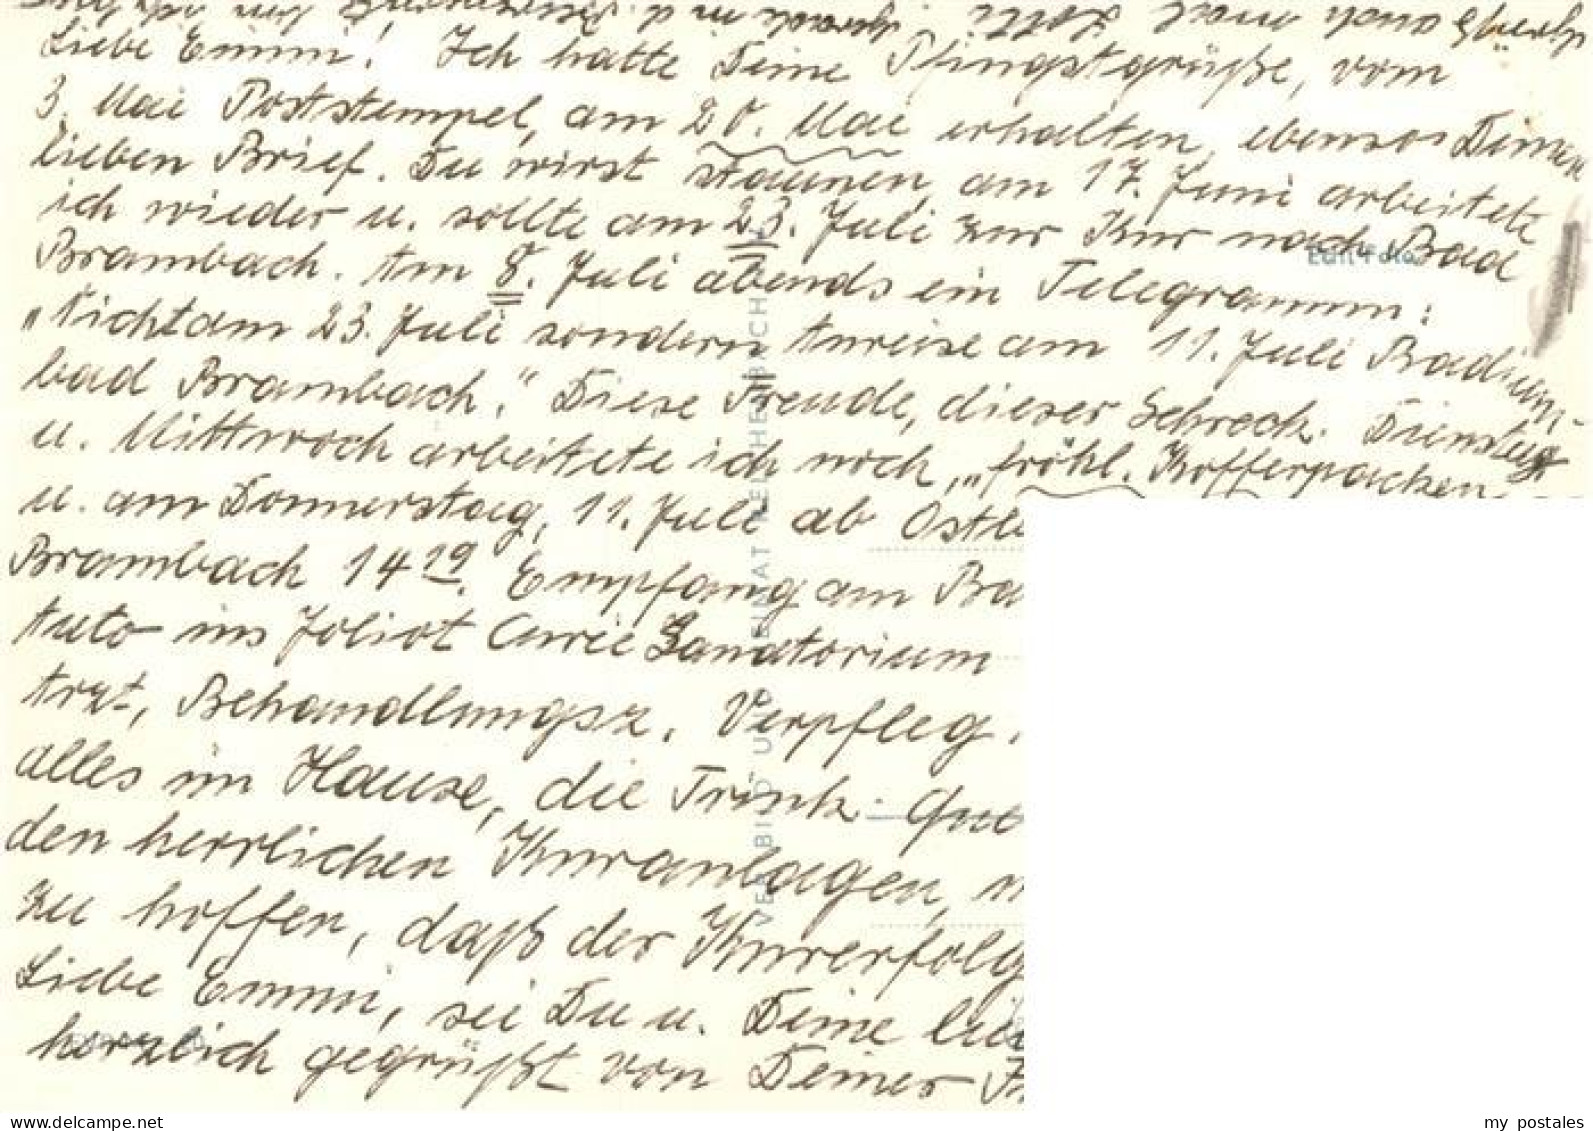 Liebe Emmi! Ich hatte Deine Pfingstgrüße, vom
3. Mai Poststempel, am 20. Mai erhalten, ebenso Deinen
lieben Brief. Du wirst staunen, am 17. Juni arbeitete
ich wieder u. sollte am 23. Juli zur Kur nach Bad
Brambach. Am 8. Juli abends ein Telegramm:
„Nicht am 23. Juli sondern Anreise am 11. Juli Radium-
bad Brambach." Diese Freude, dieser Schreck. Dienstag
u. Mittwoch arbeitete ich noch, „fröhl. Kofferpacken
u. am Donnerstag, 11. Juli ab
Brambach 14 19. Empfang am
Auto ins Joliot Curie Sanatorium
Arzt, Behandlungsz. Verpfleg.
alles im Hause, die Trink-
den herrlichen Kuranlagen,
zu hoffen, daß der Kurerfolg
Liebe Emmi, sei Du u. Deine
herzlich gegrüßt von Deiner
VER BILD UND HEIMAT REICHENBACH
my postales